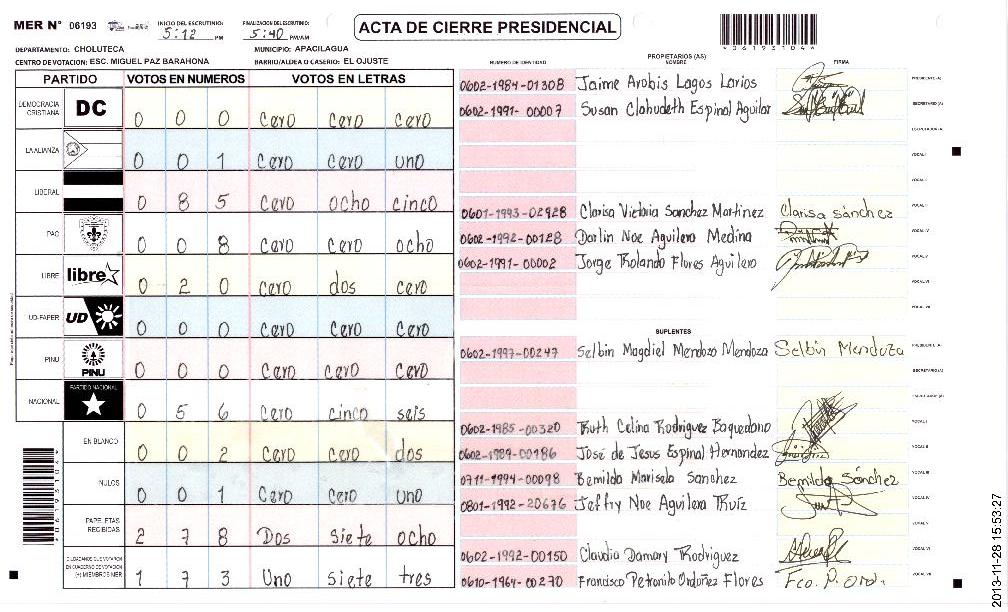 MER N° 06193 INICIO DEL ESCRUTINIO: 5:12 PM FINALIZACION DEL ESCRUTINIO: 5:40 PM/AM
ACTA DE CIERRE PRESIDENCIAL
*06193104*
DEPARTAMENTO: CHOLUTECA MUNICIPIO: APACILAGUA
CENTRO DE VOTACION: ESC. MIGUEL PAZ BARAHONA BARRIO/ALDEA O CASERIO: EL OJUSTE
PARTIDO VOTOS EN NUMEROS VOTOS EN LETRAS
DEMOCRACIA CRISTIANA DC 0 0 0 Cero Cero Cero
LA ALIANZA 0 0 1 Cero Cero uno
LIBERAL 0 8 5 Cero ocho cinco
PAC 0 0 8 Cero Cero ocho
LIBRE libre 0 2 0 Cero dos Cero
UD-FAPER UD 0 0 0 Cero Cero Cero
PINU PINU 0 0 0 Cero Cero Cero
NACIONAL PARTIDO NACIONAL 0 5 6 Cero cinco seis
EN BLANCO 0 0 2 Cero Cero dos
NULOS 0 0 1 Cero Cero uno
PAPELETAS RECIBIDAS 2 7 8 Dos siete ocho
CIUDADANOS QUE VOTARON EN CUADERNO DE VOTACION (+) MIEMBROS MER 1 7 3 Uno siete tres
NUMERO DE IDENTIDAD PROPIETARIOS (AS) NOMBRE FIRMA
0602-1984-01308 Jaime Arobis Lagos Larios PRESIDENTE (A)
0602-1991-00007 Susan Clahudeth Espinal Aguilar SECRETARIO (A)
ESCRUTADOR (A)
VOCAL I
VOCAL II
0601-1993-02928 Clarisa Victoria Sanchez Martinez Clarisa sánchez
0602-1992-00128 Darlin Noe Aguilera Medina VOCAL IV
0602-1991-00002 Jorge Rolando Flores Aguilera VOCAL V
VOCAL VI
VOCAL VII
SUPLENTES
0602-1997-00247 Selbin Magdiel Mendoza Mendoza Selbin Mendoza PRESIDENTE (A)
SECRETARIO (A)
ESCRUTADOR (A)
0602-1985-00320 Ruth Celina Rodriguez Baquedano VOCAL I
0602-1989-00186 José de Jesus Espinal Hernandez VOCAL II
0711-1994-00098 Bemilda Marisela Sanchez Bemilda Sánchez VOCAL III
0801-1992-20676 Jeffry Noe Aguilera Ruiz VOCAL IV
VOCAL V
0602-1992-00150 Claudia Damary Rodriguez VOCAL VI
0610-1964-00270 Francisco Petronilo Ordoñez Flores Fco. P. Ord. VOCAL VII
2013-11-28 15:53:27